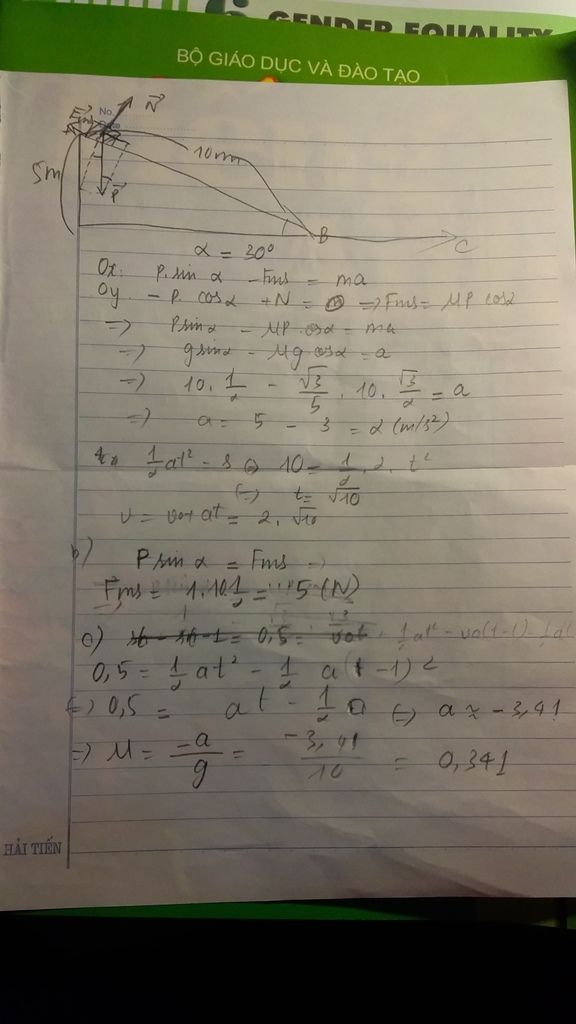 GENDER EQUALITY
BỘ GIÁO DỤC VÀ ĐÀO TẠO
No.
N
5m
10m
P
B
C
α = 30°
Ox: P. sin α - Fms = ma
Oy - P. cosα + N = 0 => Fms = μP cosα
=> Psinα - μP cosα = ma
=> gsinα - μg cosα = a
=> 10. 1/2 - √3/5 . 10. √3/2 = a
=> a = 5 - 3 = 2 (m/s²)
1/2 at² = s <=> 10 = 1/2 . 2. t²
<=> t = √10
v = vo + at = 2. √10
b) P sin α = Fms
Fms = 1.10 1/2 = 5 (N)
c) = 0,5 =
0,5 = 1/2 at² - 1/2 a(t-1)²
<=> 0,5 = at - 1/2 a <=> a ≈ -3,41
=> μ = -a/g = -3,41/10 = 0,341
HẢI TIẾN